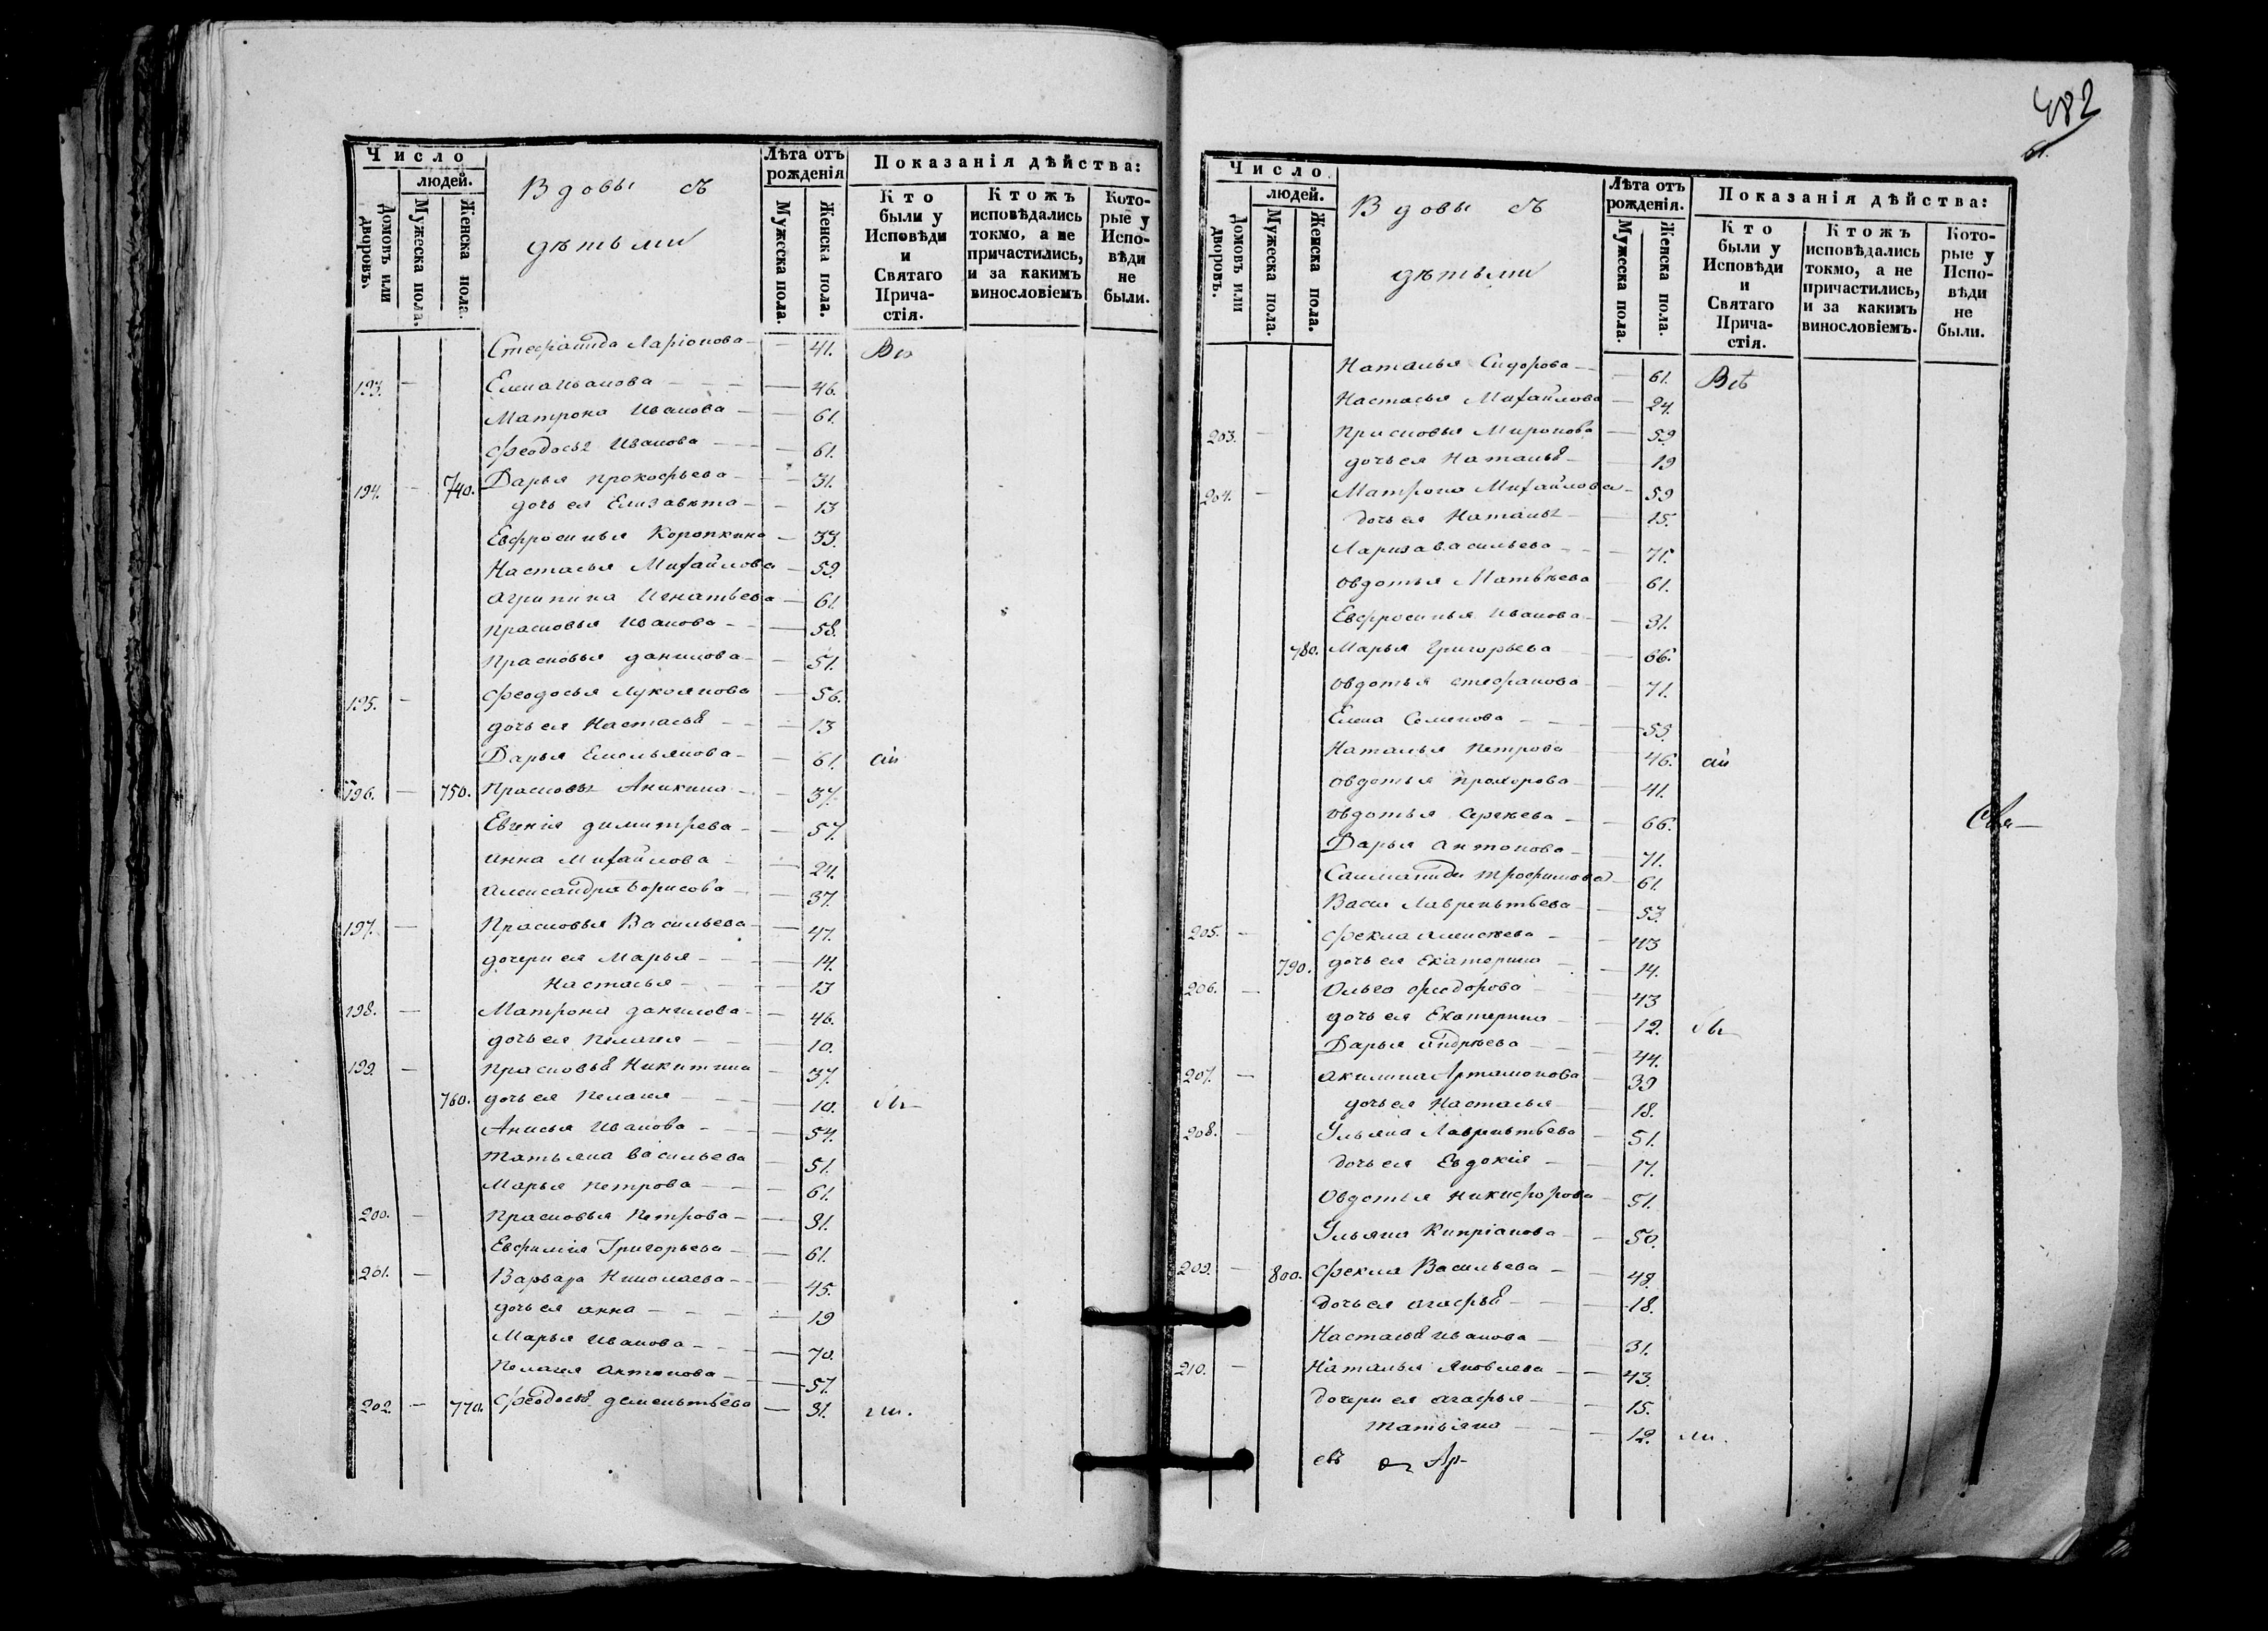 Число
людей.
Домовъ или дворовъ.
Мужеска пола.
Женска пола.
Вдовы съ
дѣтьми
Лѣта отъ рожденія
Мужеска пола.
Женска пола.
Показанія дѣйства:
Кто были у Исповѣди и Святаго Прича-стія.
Ктожъ исповѣдались токмо, а не причастились, и за какимъ винословіемъ
Кото-рые у Испо-вѣди не были.
Стефанида Ларіонова 41.
193. Елена Иванова 46.
Матрона Иванова 61.
Феодосья Иванова 61.
194. 740. Дарья Прокофьева 31.
дочь ея Елизавѣта 13
Евфросинья Коропкина 33.
Настасья Михайлова 59.
Агрипина Игнатьева 61.
Прасковья Иванова 58.
Прасковья Данилова 51.
195. Феодосья Лукоянова 56.
дочь ея Настасья 13
Дарья Емельянова 61.
196. 750. Прасковья Аникина 37.
Евгенія Димитрева 57.
Анна Михайлова 24.
Александра Борисова 37.
197. Прасковья Васильева 47.
дочери ея Марья 14.
Настасья 13
198. Матрона Данилова 46.
дочь ея Пелагея 10.
199. Прасковья Никитина 37.
760. дочь ея Пелагея 10.
Анисья Иванова 57.
Татьяна Васильева 51.
Марья Петрова 61.
200. Прасковья Петрова 31.
Евфимія Григорьева 61.
201. Варвара Николаева 45.
дочь ея Анна 19
Марья Иванова 70.
Пелагея Антонова 57.
202. 770. Феодосья Дементьева 31.
482
Число
людей.
Домовъ или дворовъ.
Мужеска пола.
Женска пола.
Вдовы съ
дѣтьми
Лѣта отъ рожденія.
Мужеска пола.
Женска пола.
Показанія дѣйства:
Кто были у Исповѣди и Святаго Прича-стія.
Ктожъ исповѣдались токмо, а не причастились, и за какимъ винословіемъ.
Кото-рые у Испо-вѣди не были.
Наталья Сидорова 61. Всѣ
Настасья Михайлова 24.
203. Прасковья Миронова 59
дочь ея Наталья 19
204. Матрона Михайлова 59
дочь ея Наталья 15.
Лариса Васильева 71.
Овдотья Матвѣева 61.
Евфросинья Иванова 31.
780. Марья Григорьева 66.
Овдотья Стефанова 71.
Елена Семенова 53.
Наталья Петрова 46.
Овдотья Прохорова 41.
Овдотья Сергѣева 66.
Дарья Антонова 71.
Трофимова 61.
Васса Лаврентьева 53.
205. Фекла Алексѣева 43
790. дочь ея Екатерина 14.
206. Ольга Федорова 43
дочь ея Екатерина 12.
Дарья Андрѣева 44.
207. Акилина Артамонова 39
дочь ея Настасья 18.
208. Ульяна Лаврентьева 51.
дочь ея Евдокія 17.
Овдотья Никифорова 51.
Ульяна Кипріанова 50.
209. 800. Фекла Васильева 48.
дочь ея Агафья 18.
Настасья Иванова 31.
210. Наталья Яковлева 43.
дочери ея Агафья 15.
Татьяна 12.